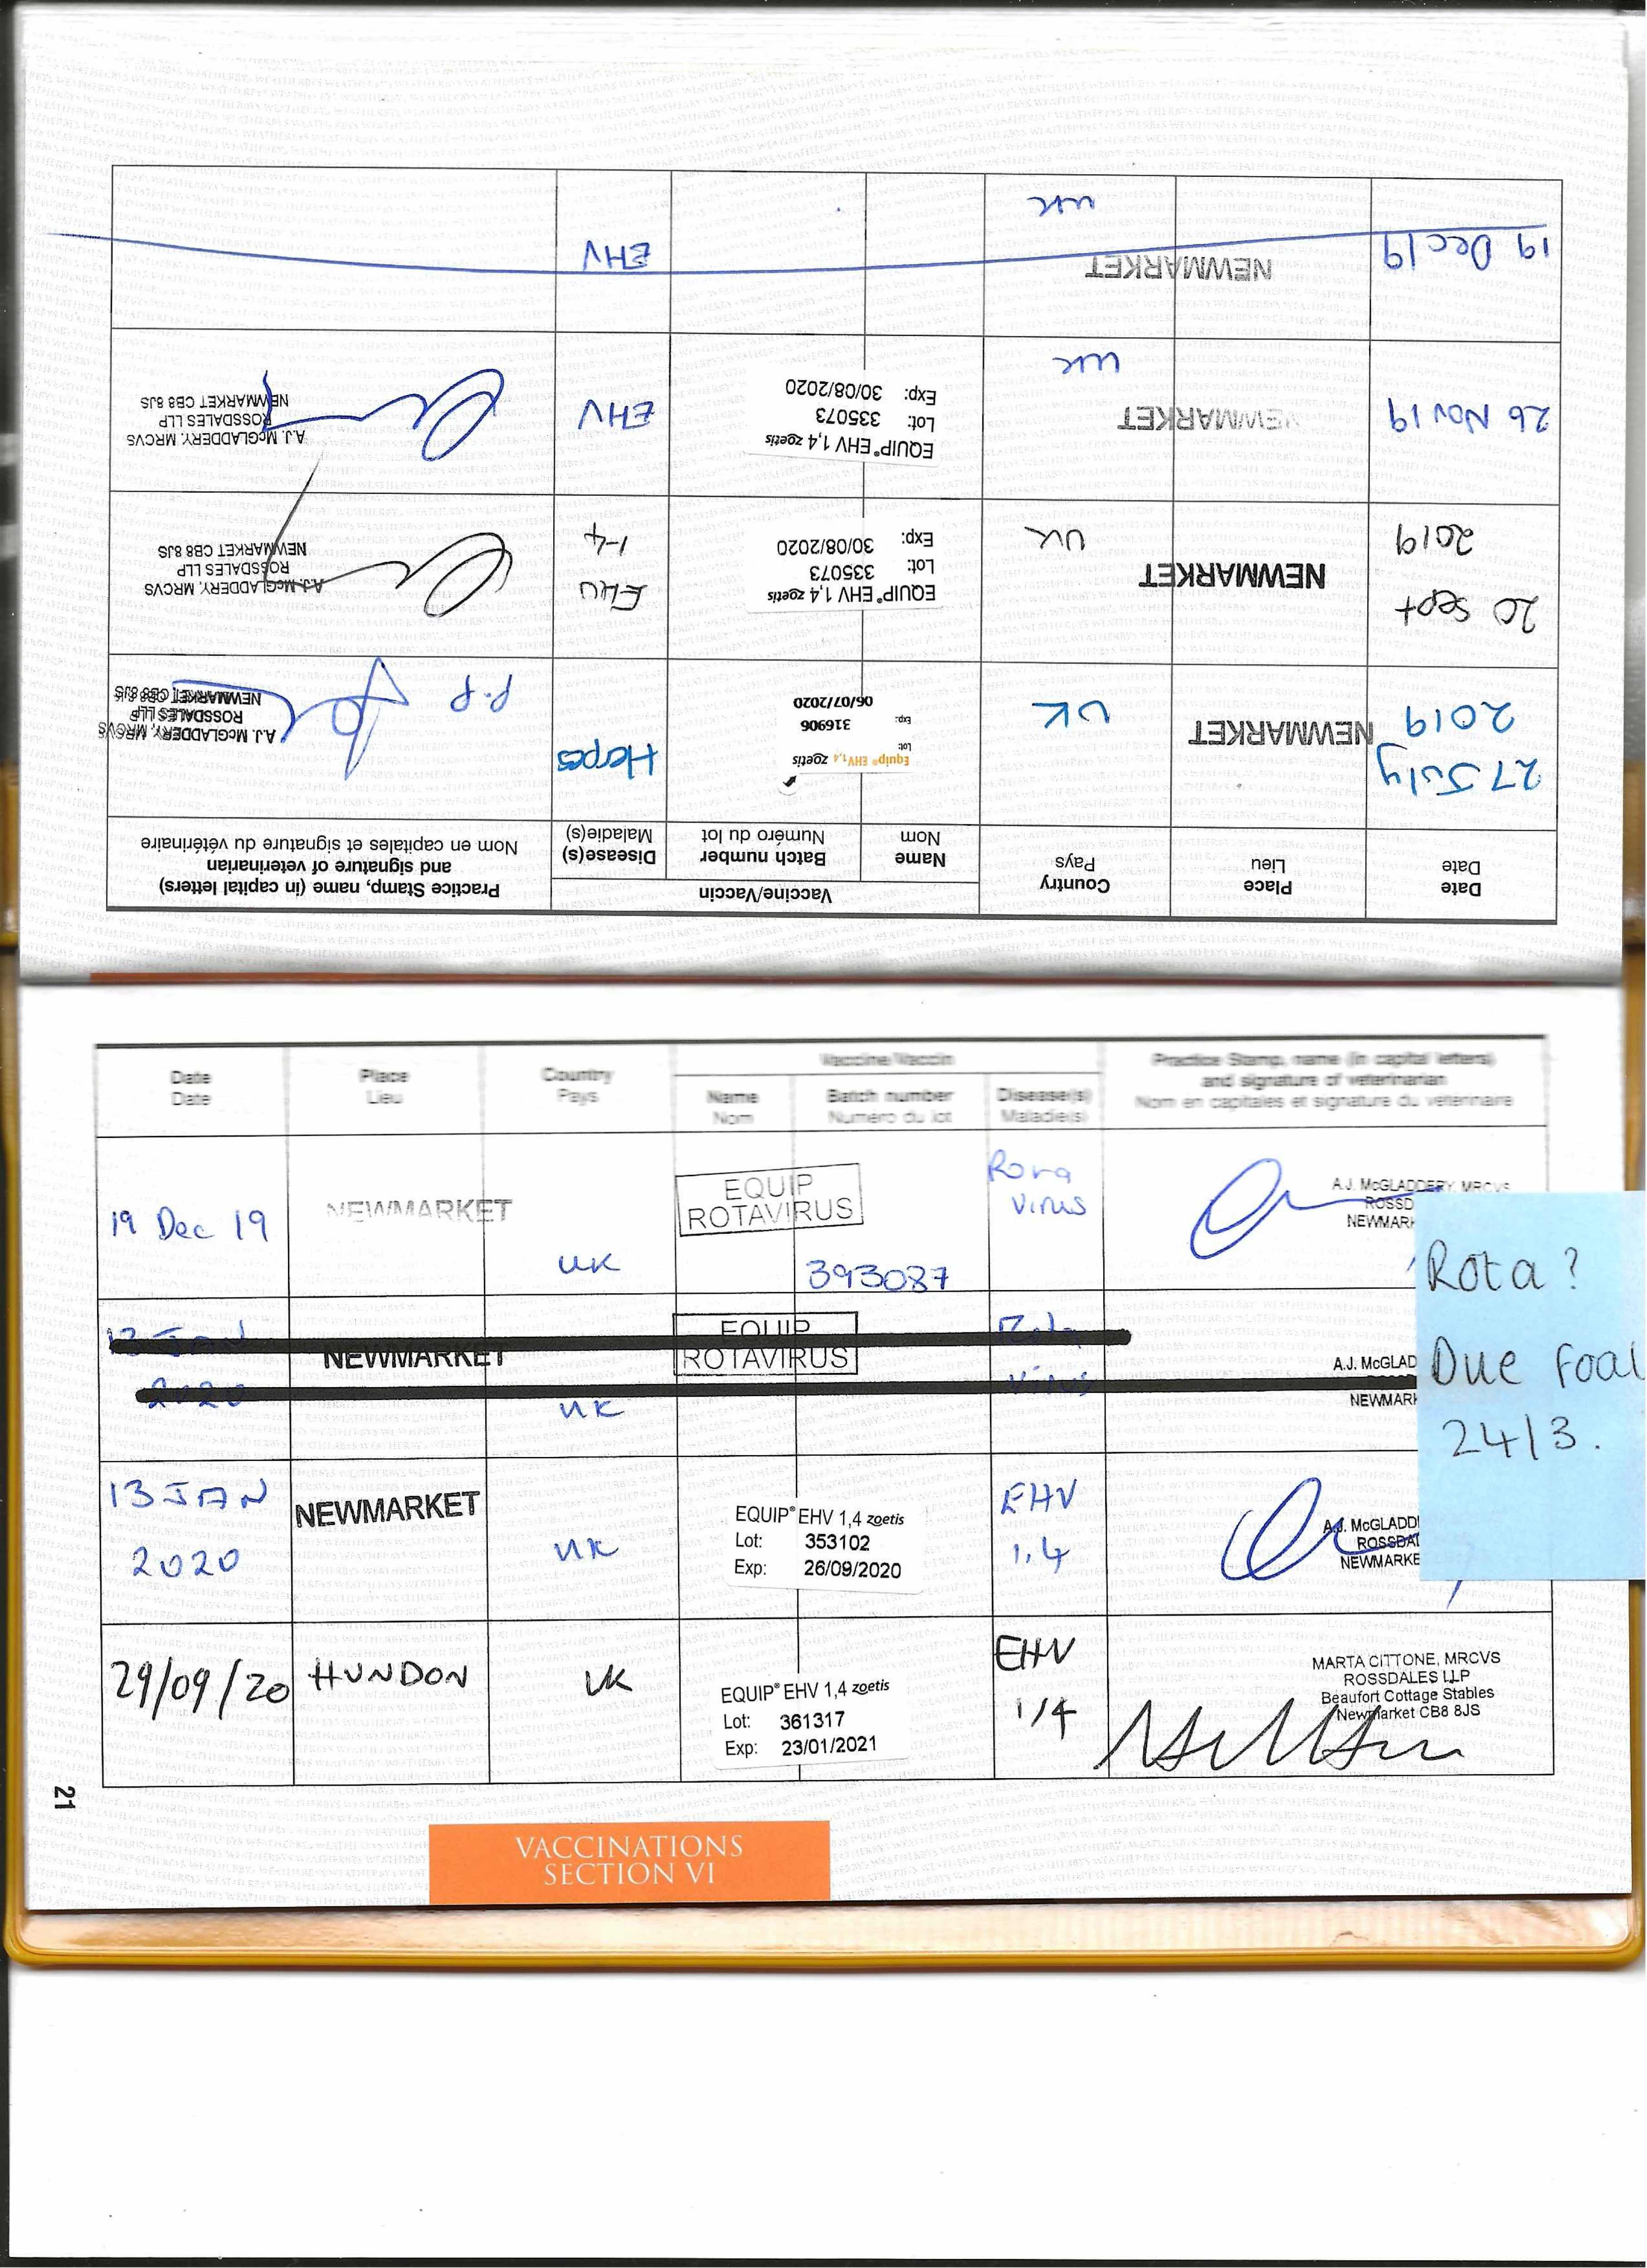 Date
Date
Place
Lieu
Country
Pays
Vaccine/Vaccin
Name
Nom
Batch number
Numéro du lot
Disease(s)
Maladie(s)
Practice Stamp, name (in capital letters)
and signature of veterinarian
Nom en capitales et signature du vétérinaire
27 July
2019
NEWMARKET
UK
Equip® EHV1,4 zoetis
Lot: 316906
Exp: 06/07/2020
Herpes
P.P
A.J. McGLADDERY, MRCVS
ROSSDALES LLP
NEWMARKET CB8 8JS
20 Sept
2019
NEWMARKET
UK
EQUIP® EHV 1,4 zoetis
Lot: 335073
Exp: 30/08/2020
EHV
1-4
A.J. McGLADDERY, MRCVS
ROSSDALES LLP
NEWMARKET CB8 8JS
26 Nov 19
NEWMARKET
UK
EQUIP® EHV 1,4 zoetis
Lot: 335073
Exp: 30/08/2020
EHV
A.J. McGLADDERY, MRCVS
ROSSDALES LLP
NEWMARKET CB8 8JS
19 Dec 19
NEWMARKET
UK
EHV
Date
Date
Place
Lieu
Country
Pays
Vaccine/Vaccin
Name
Nom
Batch number
Numéro du lot
Disease(s)
Maladie(s)
Practice Stamp, name (in capital letters)
and signature of veterinarian
Nom en capitales et signature du vétérinaire
19 Dec 19
NEWMARKET
UK
EQUIP
ROTAVIRUS
393087
Rota
Virus
A.J. McGLADDERY, MRCVS
ROSSD
NEWMARK
13 JAN
2020
NEWMARKET
UK
EQUIP
ROTAVIRUS
Rota
Virus
A.J. McGLAD
NEWMARK
13 JAN
2020
NEWMARKET
UK
EQUIP® EHV 1,4 zoetis
Lot: 353102
Exp: 26/09/2020
EHV
1,4
A.J. McGLADD
ROSSDAL
NEWMARKE
Rota?
Due Foal
24/3.
29/09/20
HUNDON
UK
EQUIP® EHV 1,4 zoetis
Lot: 361317
Exp: 23/01/2021
EHV
1/4
MARTA CITTONE, MRCVS
ROSSDALES LLP
Beaufort Cottage Stables
Newmarket CB8 8JS
21
VACCINATIONS
SECTION VI